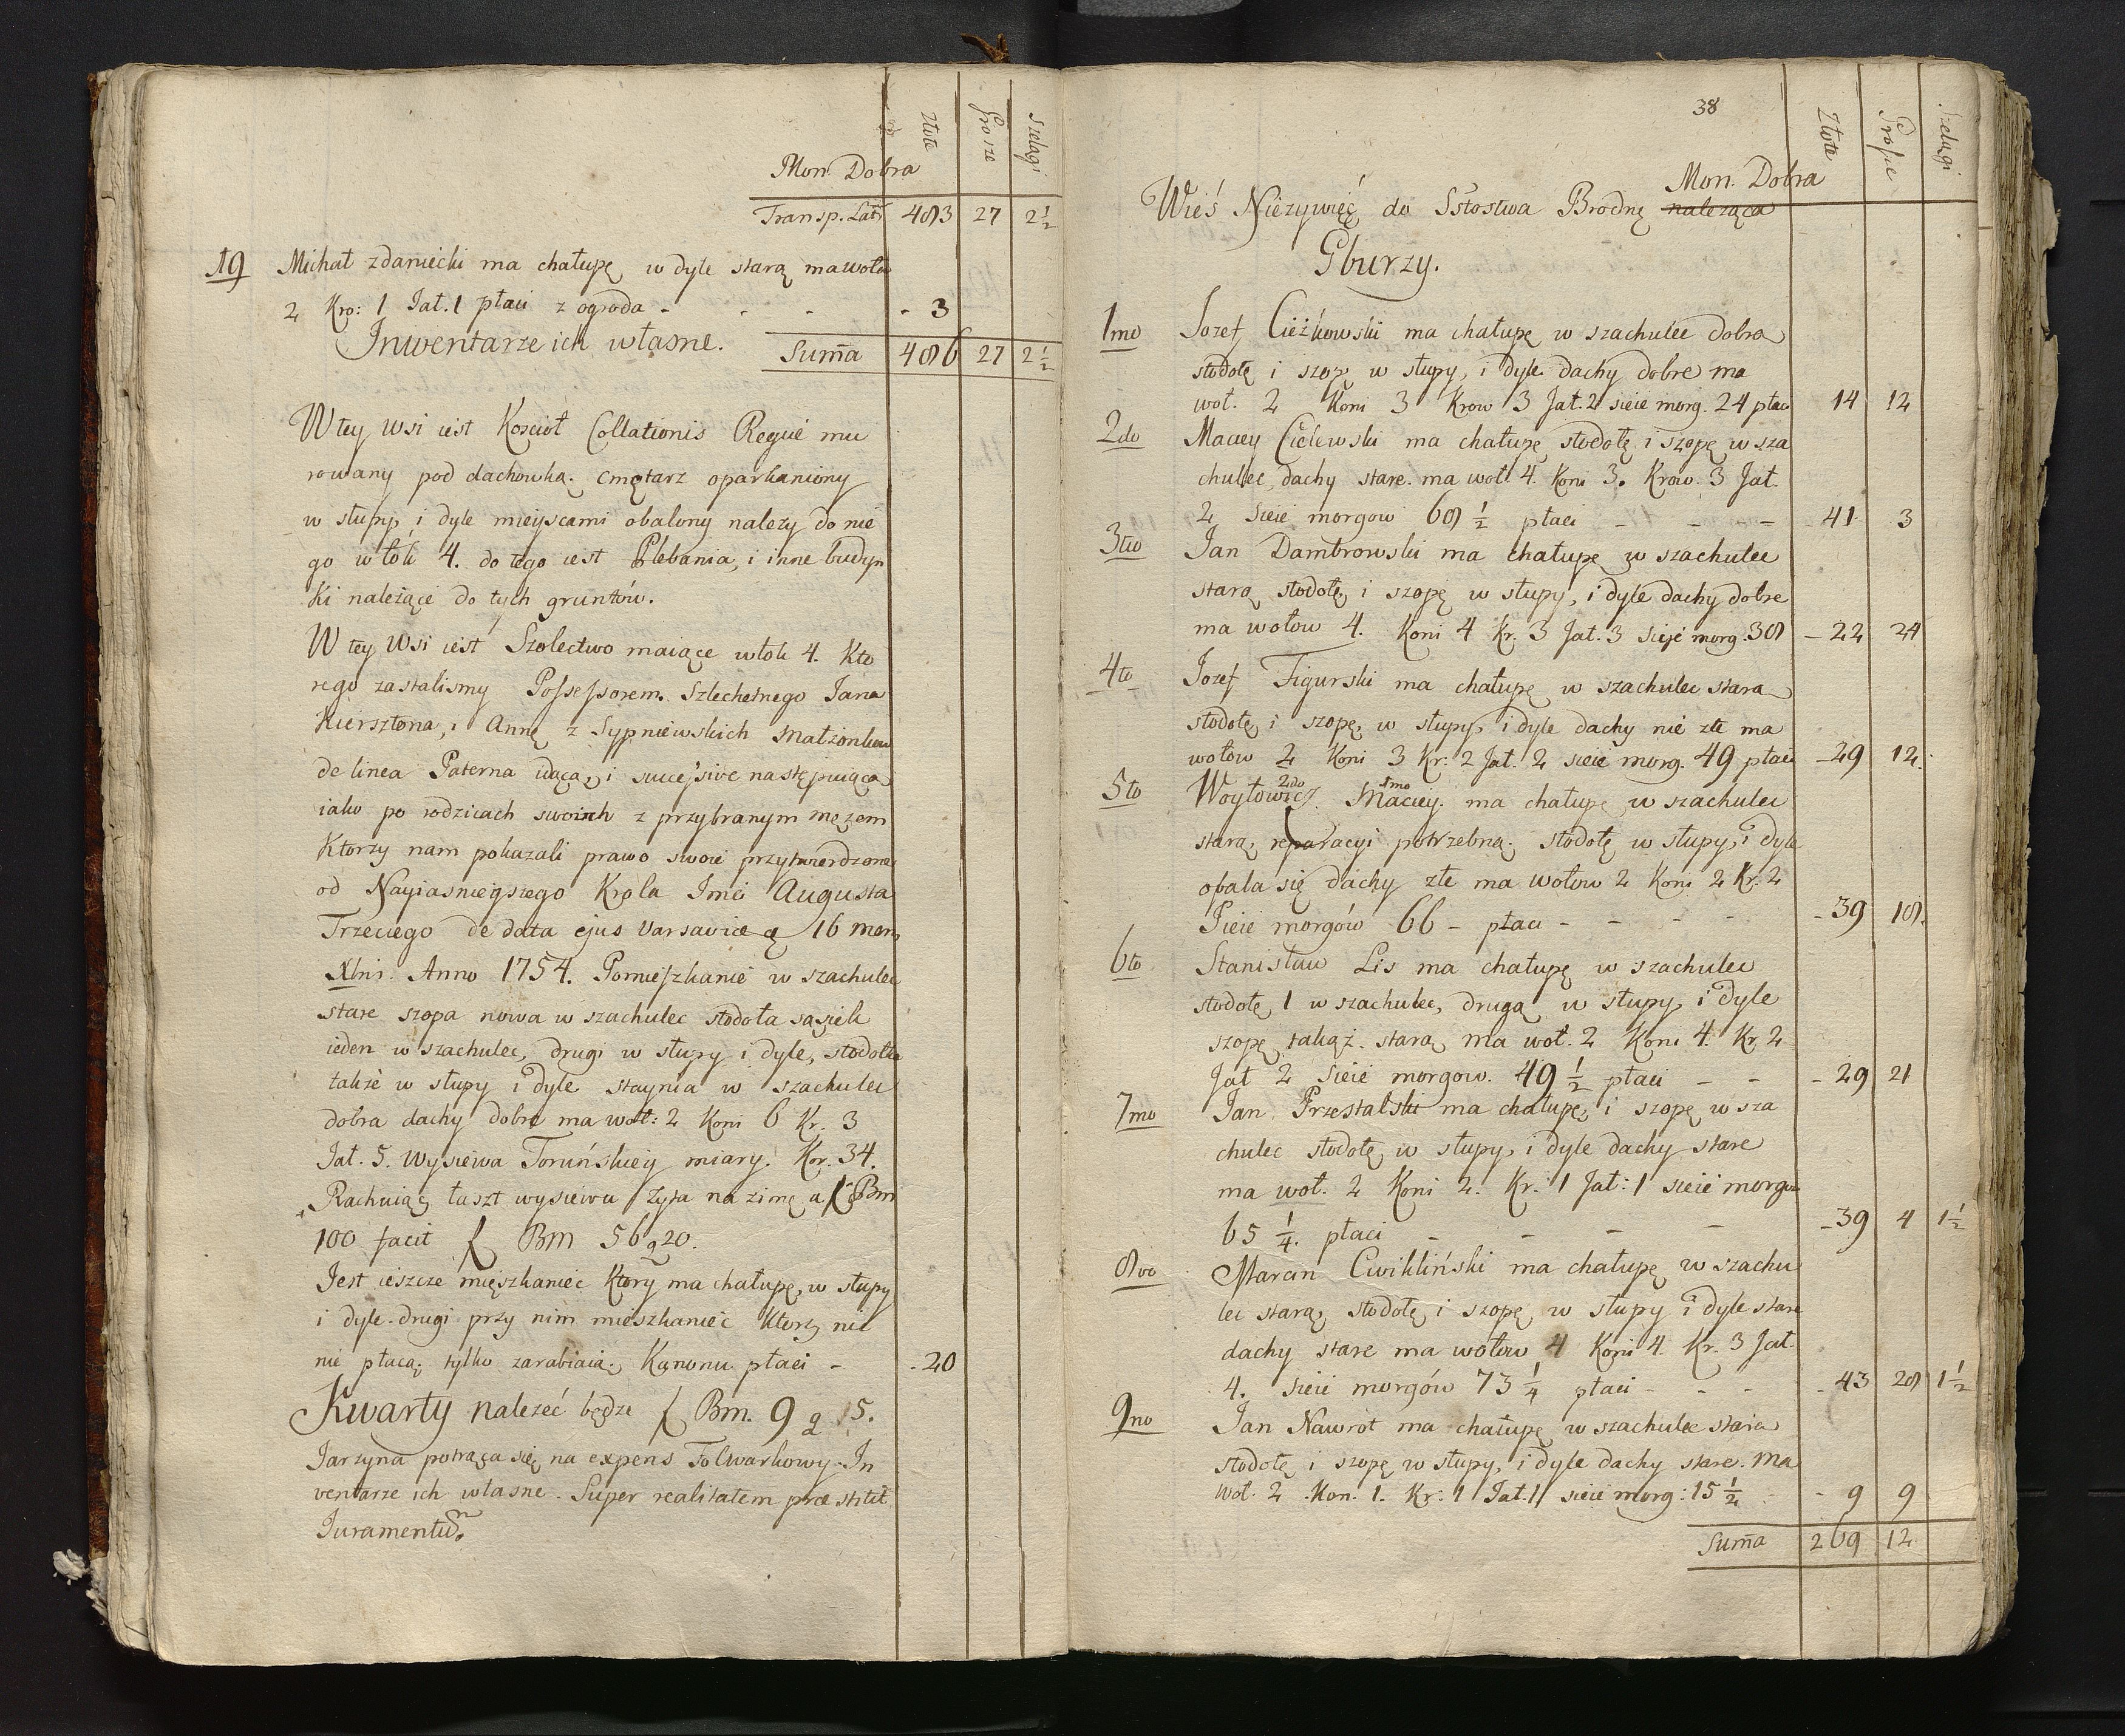 Złote Grosze Szelągi
Mon. Dobra
Transp. Lat. 483 27 2½
19 Michał Zdaniecki ma chałupę w dyle starą ma woła
2 Kro: 1 Jał. 1 płaci z ogroda - - - - 3
Inwentarze ich własne. Suma 486 27 2½
W tey Wsi iest Kościoł Collationis Regiæ mu
rowany pod dachowką. Cmętarz oparkaniony
w słupy i dyle mieyscami obalony nalezy do nie
go włók 4. do tego iest Plebania, i inne budyn
ki należące do tych gruntów.
W tey Wsi iest Szolectwo maiące włok 4. Kto
rego zastalismy Possessorem Szlechetnego Jana
Kiersztona, i Annę z Sypniewskich Małzonkow
de linea Paterna idącą, i successive następuiącą
iako po rodzicach swoich z przybranym męzem
Ktorzy nam pokazali prawo swoie przytwierdzone
od Nayiasnieyszego Krola Jmci Augusta
Trzeciego de data ejus Varsaviæ 16 mens
Xbris. Anno 1754. Pomieszkanie w szachulec
stare szopa nowa w szachulec stodoła sąsiek
ieden w szachulec, drugi w słupy i dyle, stodołka
takżé w słupy i dyle staynia w szachulec
dobra dachy dobre ma woł: 2 Koni 6 Kr. 3
Jał. 5. Wysiewa Toruńskiey miary. Kor. 34.
Rachuiąc łaszt wysiewu żyta na zimę a f Bm
100 facit f Bm 56 g 20.
Jest ieszcze mięszkaniec Ktory ma chałupę w słupy
i dyle drugi przy nim mieszkaniec Ktorzy nic
nie płacą, tylko zarabiaią. Kanonu płaci - - 20
Kwarty nalezeć będzie f Bm. 9 g 15.
Jarzyna potrąca się na expens Folwarkowy. In
ventarze ich własne. Super realitatem præstitit
Juramentum.
38
Złote Grosze Szelągi
Mon. Dobra
Wieś Nieżywięć do Sstostwa Brodnę należąca
Gburzy.
1mo Jozef Cieżkowski ma chałupę w szachulec dobrą
stodołę i szop w słupy, i dyle dachy dobre ma
woł. 2 Koni 3 Krow 3 Jał. 2 sieie morg. 24 płaci 14 12
2do Maciey Cielewski ma chałupę stodołę i szopę w sza
chulec, dachy stare. ma woł. 4. Koni 3. Krow. 3 Jał.
2 sieie morgow 68½ płaci - - - 41 3
3tio Jan Dambrowski ma chałupę w szachulec
starą stodołę i szopę w słupy, i dyle dachy dobre
ma wołow 4. Koni 4 Kr. 3 Jał. 3 sieie morg. 38 - 22 24
4to Jozef Figurski ma chałupę w szachulec starą
stodołę i szopę w słupy, i dyle dachy nie złe ma
wołow 2 Koni 3 Kr. 2 Jał. 2 sieie morg. 49 płaci - 29 12.
5to Woytowicz 2do Maciey 1mo ma chałupę w szachulec
starą, reparacyi potrzebną. stodołę w słupy, i dyle
obala się dachy złe ma wołow 2 Koni 2 Kr. 2
Sieie morgów 66 - płaci - - - - - 39 18.
6to Stanisław Lis ma chałupę w szachulec
stodołę 1 w szachulec, drugą w słupy i dyle
szopę takąż starą, ma woł. 2 Koni 4. Kr. 2
Jał 2 Sieie morgow. 49½ płaci - - - 29 21
7mo Jan Przestalski ma chałupę, i szopę w sza
chulec stodołę w słupy, i dyle dachy stare
ma woł. 2 Koni 2. Kr. 1 Jał: 1 sieie morgow
65¼. płaci - - - - - 39 4 1½
8vo Marcin Cwikliński ma chałupę w szachu
lec starą, stodołę i szopę w słupy i dyle stare
dachy stare ma wołow 4 Koni 4. Kr. 3 Jał.
4. sieie morgów 73¼ płaci - - - - 43 28 1½
9no Jan Nawrot ma chałupę w szachulec starą
stodołę i szopę w słupy, i dyle dachy stare. ma
woł. 2 Kon. 1. Kr: 1 Jał. 1 sieie morg: 15½ - - 9 9
Suma 269 12